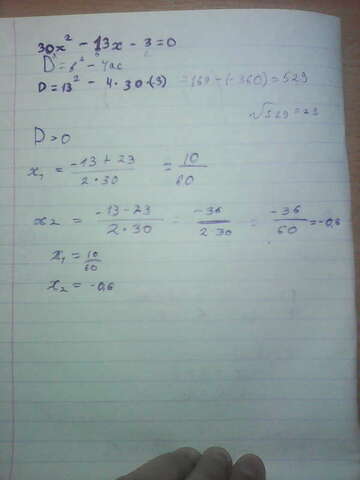 30x² - 13x - 3 = 0
D = b² - 4ac
D = 13² - 4·30·(-3) = 169 - (-360) = 529
√529 = 23
D > 0
x₁ = (-13 + 23)/(2·30) = 10/60
x₂ = (-13 - 23)/(2·30) = -36/(2·30) = -36/60 = -0,6
x₁ = 10/60
x₂ = -0,6